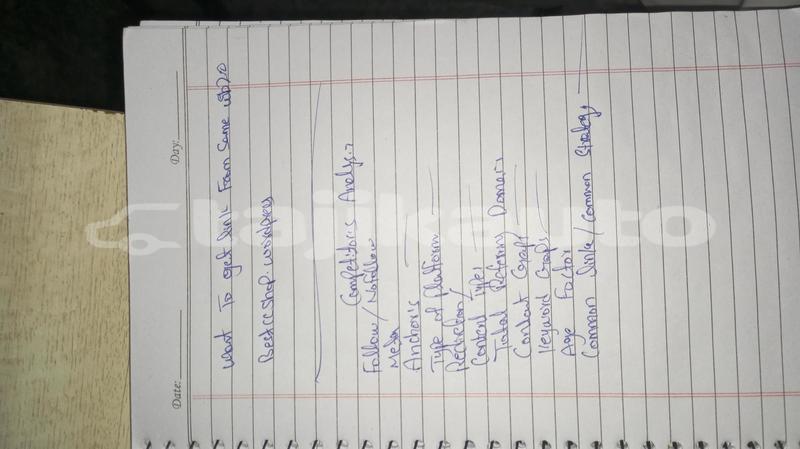 Date: Day:
Want To get link From Same web20
Bestccshop.wordpress
Competitor's Analys.s
Follow/Nofollow
Anchor's
Type of Platform
Content Type,
Total Refering Domains
Content Gaps
Keyword Gaps
Age Factor
Common links/Common Strategy
tajikauto